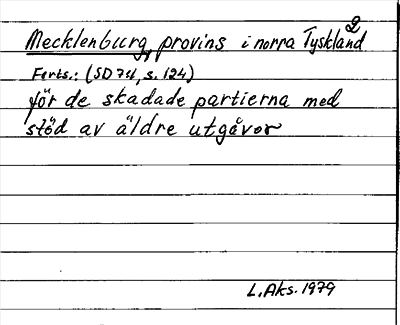 2
Mecklenburg, provins i norra Tyskland
Forts.: (SD 74, s. 124)
för de skadade partierna med
stöd av äldre utgåvor
L. Aks. 1979